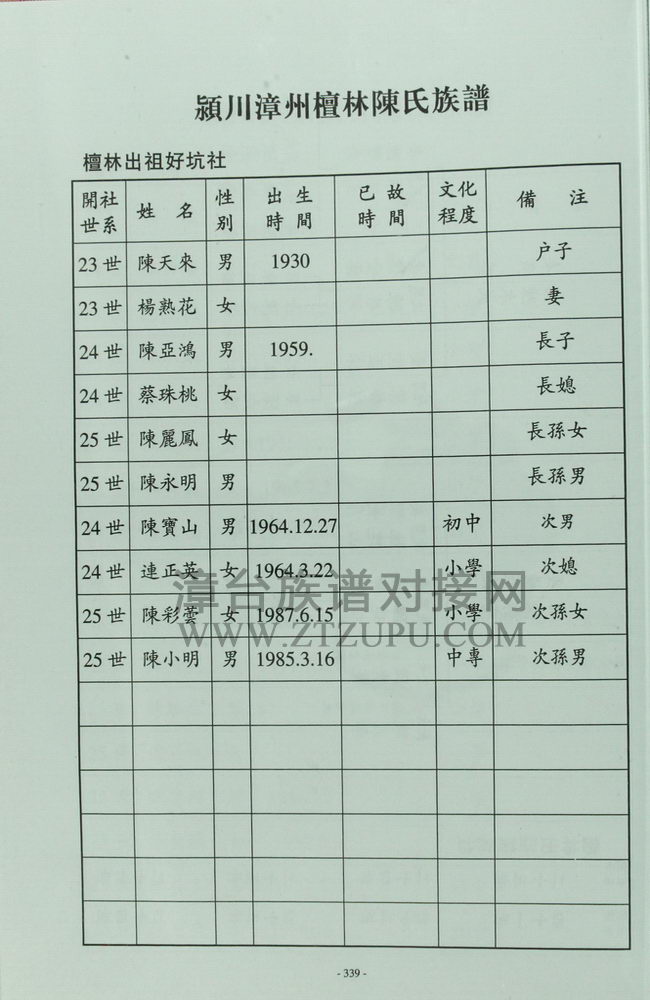 潁川漳州檀林陳氏族譜
檀林出祖好坑社
開社世系 姓 名 性别 出生時間 已故時間 文化程度 備 注
23世 陳天來 男 1930 户子
23世 楊熟花 女 妻
24世 陳亞鴻 男 1959. 長子
24世 蔡珠桃 女 長媳
25世 陳麗鳳 女 長孫女
25世 陳永明 男 長孫男
24世 陳寶山 男 1964.12.27 初中 次男
24世 連正英 女 1964.3.22 小學 次媳
25世 陳彩蕓 女 1987.6.15 小學 次孫女
25世 陳小明 男 1985.3.16 中專 次孫男
漳台族谱对接网
WWW.ZTZUPU.COM
- 339 -